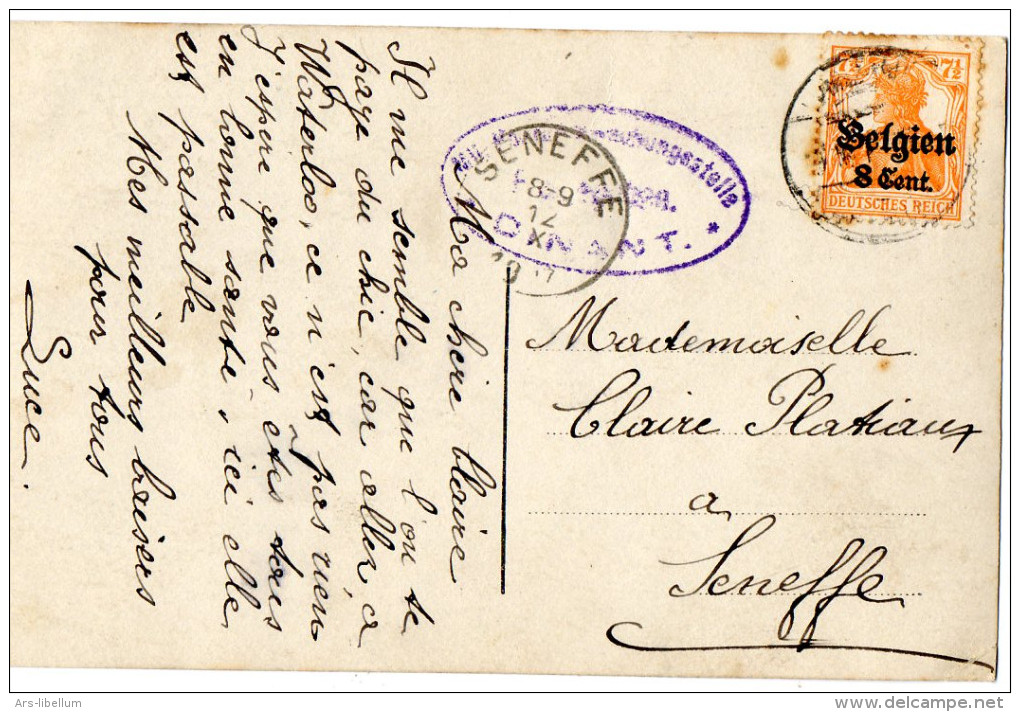 Ma chère Claire
Il me semble que l'on te
paye du chic, car aller, a
Waterloo, ce n'est pas rien
J'espère que vous êtes tous
en bonne santé, ici elle
est passable
Mes meilleurs baisers
pour tous
Luce.
SENEFFE
8-9
12
XI
DINANT. *
7½ 7½
Belgien
8 Cent.
DEUTSCHES REICH
Mademoiselle
Claire Platiaux
a
Seneffe
Ars-libellum
www.delcampe.net